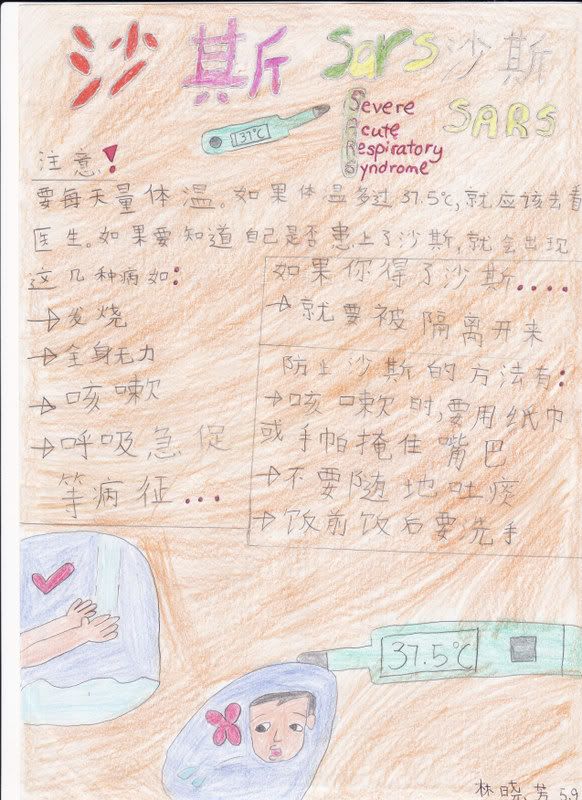 沙斯 Sars 沙斯
37℃
Severe
Acute
Respiratory
Syndrome
SARS
注意!
要每天量体温。如果体温多过37.5℃,就应该去看
医生。如果要知道自己是否患上了沙斯,就会出现
这几种病如:
→发烧
→全身无力
→咳嗽
→呼吸急促
等病征...
如果你得了沙斯....
→就要被隔离开来
防上沙斯的方法有:
→咳嗽时,要用纸巾
或手帕掩住嘴巴
→不要随地吐痰
→饭前饭后要洗手
37.5℃
林晓芳 5.9